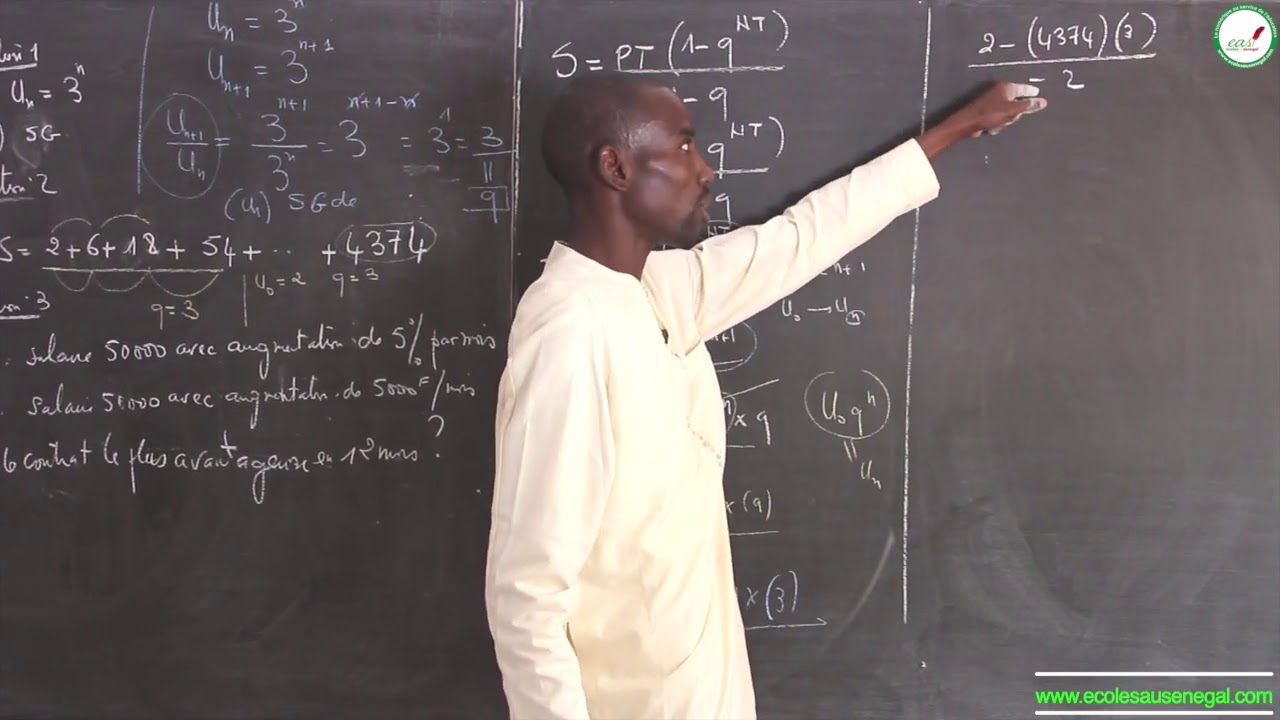 Uₙ = 3ⁿ
Uₙ₊₁ = 3ⁿ⁺¹
Uₙ = 3ⁿ
SG
2
Uₙ₊₁/Uₙ = 3ⁿ⁺¹/3ⁿ = 3ⁿ⁺¹⁻ⁿ = 3¹ = 3
q
(Uₙ) SG de
S = 2+6+18+ 54+ ... +4374
q=3
U₀ = 2 q=3
3
Salaire 50000 avec augmentation de 5% par mois
Salaire 50000 avec augmentation de 5000F/mois
contrat le plus avantageux en 12 mois ?
S = PT (1- q^NT)
- q
q^NT)
q
n+1
U₀ → Uₙ
n+1
× q
U₀ qⁿ
Uₙ
×(q)
×(3)
2 - (4374)(3)
- 2
eas
www.ecolesausenegal.com